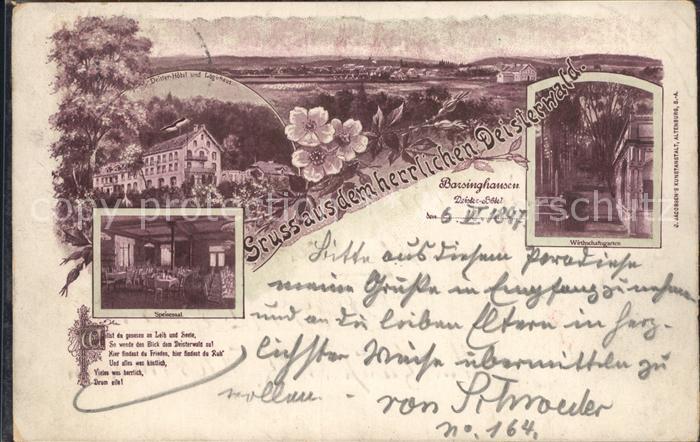 Deister-Hôtel und Logirhaus
Gruss aus dem herrlichen Deisterwald.
Barsinghausen
Deister-Hôtel
den 6 VI. 1897
Wirthschaftsgarten
J. JACOBSEN'S KUNSTANSTALT, ALTENBURG, S.-A.
Speisesaal
Willst du genesen an Leib und Seele,
So wende den Blick dem Deisterwald zu!
Hier findest du Frieden, hier findest du Ruh'
Und alles was köstlich,
Vieles was herrlich,
Drum eile!
Bitte aus diesem Paradiese
meine Grüße in Empfang zu nehmen
und an die lieben Eltern in herz-
lichster Weise übermitteln zu
wollen. - von Schroeder
No. 164.
copyright picclick.com